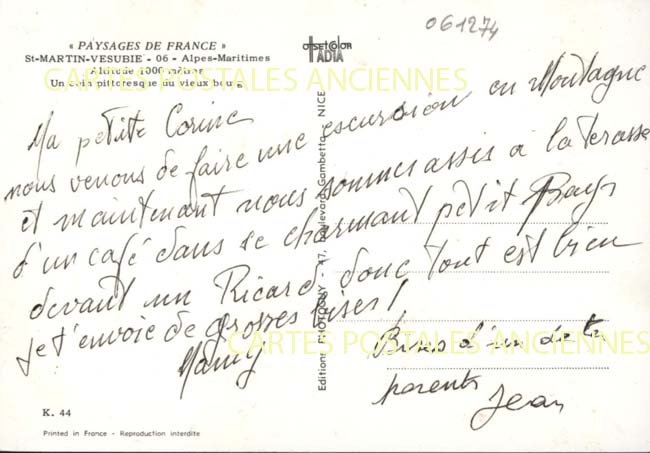 061274
« PAYSAGES DE FRANCE »
St-MARTIN-VESUBIE - 06 - Alpes-Maritimes
Altitude 1000 mètres
Un coin pittoresque du vieux bourg
OFFSET COLOR
IADIA
CARTES POSTALES ANCIENNES
Ma petite Corine
nous venons de faire une escursion en Montagne
et maintenant nous sommes assis à la terasse
d'un café dans se charmant petit Pays
devant un Ricard, donc tout est bien
je t'envoie de grosses bises !
Mamy
Bises d'un de tes
parents
Jean
Editions PHOTOGUY - 47, boulevard Gambetta - NICE
CARTES POSTALES ANCIENNES
K. 44
Printed in France - Reproduction interdite